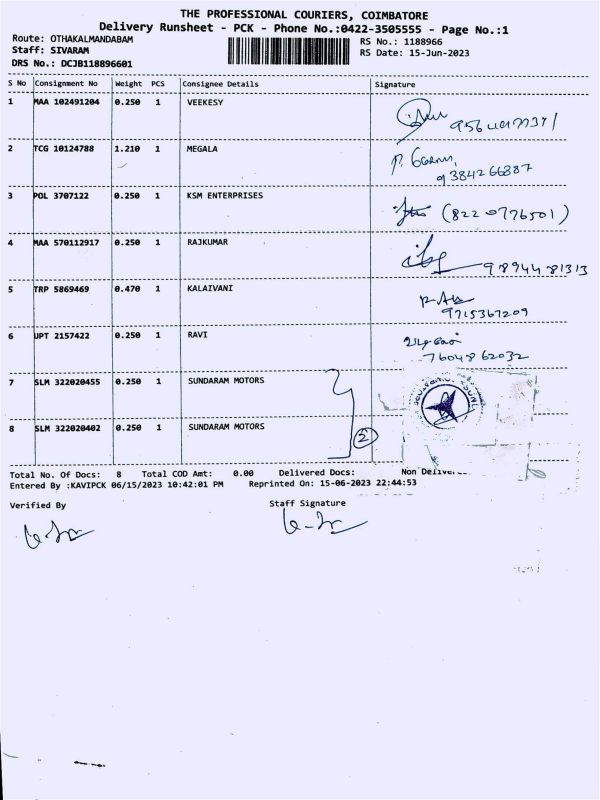 THE PROFESSIONAL COURIERS, COIMBATORE
Delivery Runsheet - PCK - Phone No.:0422-3505555 - Page No.:1
Route: OTHAKALMANDABAM
RS No.: 1188966
Staff: SIVARAM
RS Date: 15-Jun-2023
DRS No.: DCJB118896601
S No Consignment No Weight PCS Consignee Details Signature
1 MAA 102491204 0.250 1 VEEKESY
2 TCG 10124788 1.210 1 MEGALA
9384266887
3 POL 3707122 0.250 1 KSM ENTERPRISES
(8220776501)
4 MAA 570112917 0.250 1 RAJKUMAR
9894481313
5 TRP 5869469 0.470 1 KALAIVANI
9715367209
6 UPT 2157422 0.250 1 RAVI
7604862032
7 SLM 322020455 0.250 1 SUNDARAM MOTORS
8 SLM 322020402 0.250 1 SUNDARAM MOTORS
2
Total No. Of Docs: 8 Total COD Amt: 0.00 Delivered Docs: Non
Entered By :KAVIPCK 06/15/2023 10:42:01 PM Reprinted On: 15-06-2023 22:44:53
Verified By Staff Signature